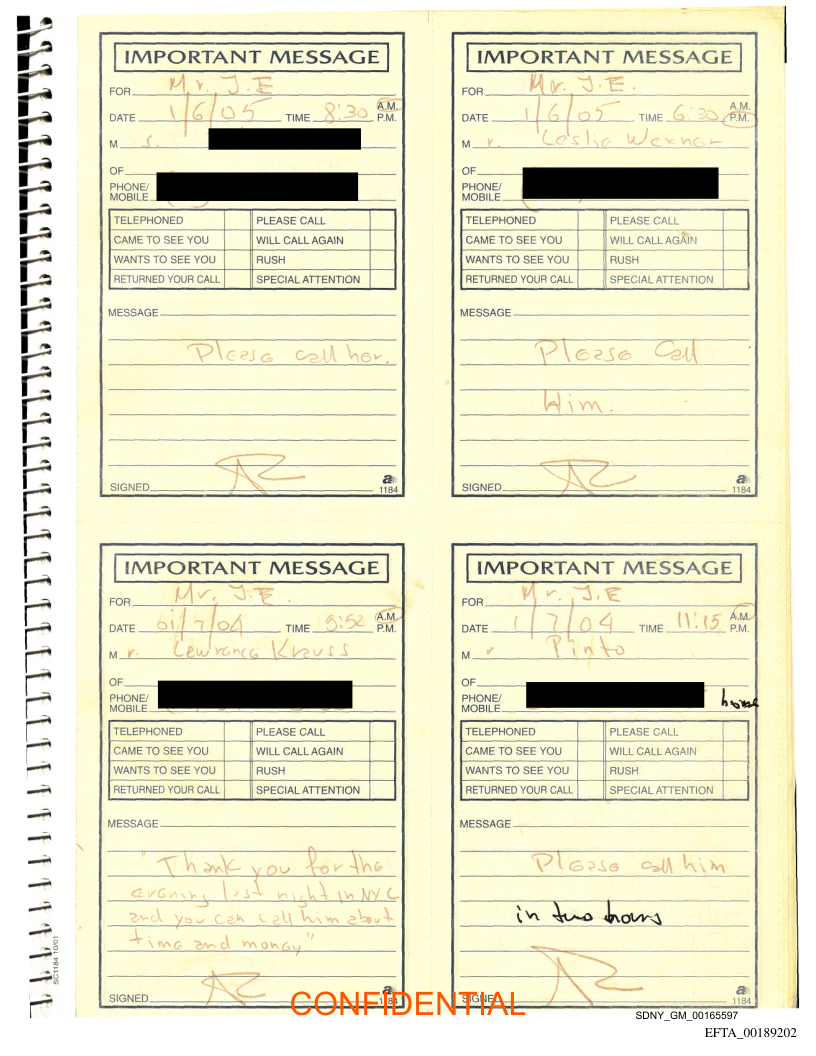 IMPORTANT MESSAGE
FOR Mr. J.E
DATE 1/6/05 TIME 8:30 A.M. P.M.
M s.
OF
PHONE/ MOBILE
TELEPHONED PLEASE CALL
CAME TO SEE YOU WILL CALL AGAIN
WANTS TO SEE YOU RUSH
RETURNED YOUR CALL SPECIAL ATTENTION
MESSAGE
Please call her.
SIGNED
a
1184
IMPORTANT MESSAGE
FOR Mr. J.E.
DATE 1/6/05 TIME 6:30 A.M. P.M.
M r. Leslie Wexner
OF
PHONE/ MOBILE
TELEPHONED PLEASE CALL
CAME TO SEE YOU WILL CALL AGAIN
WANTS TO SEE YOU RUSH
RETURNED YOUR CALL SPECIAL ATTENTION
MESSAGE
Please Call
Him.
SIGNED
a
1184
IMPORTANT MESSAGE
FOR Mr. J.E.
DATE 01/7/04 TIME 9:52 A.M. P.M.
M r. Lewrance Krauss
OF
PHONE/ MOBILE
TELEPHONED PLEASE CALL
CAME TO SEE YOU WILL CALL AGAIN
WANTS TO SEE YOU RUSH
RETURNED YOUR CALL SPECIAL ATTENTION
MESSAGE
"Thank you for the
evening last night in NYC
and you can call him about
time and money"
SIGNED
a
1184
IMPORTANT MESSAGE
FOR Mr. J.E
DATE 1/7/04 TIME 11:15 A.M. P.M.
M r Pinto
OF
PHONE/ MOBILE
home
TELEPHONED PLEASE CALL
CAME TO SEE YOU WILL CALL AGAIN
WANTS TO SEE YOU RUSH
RETURNED YOUR CALL SPECIAL ATTENTION
MESSAGE
Please call him
in two hours
SIGNED
a
1184
SC1184 10/01
CONFIDENTIAL
SDNY_GM_00165597
EFTA_00189202